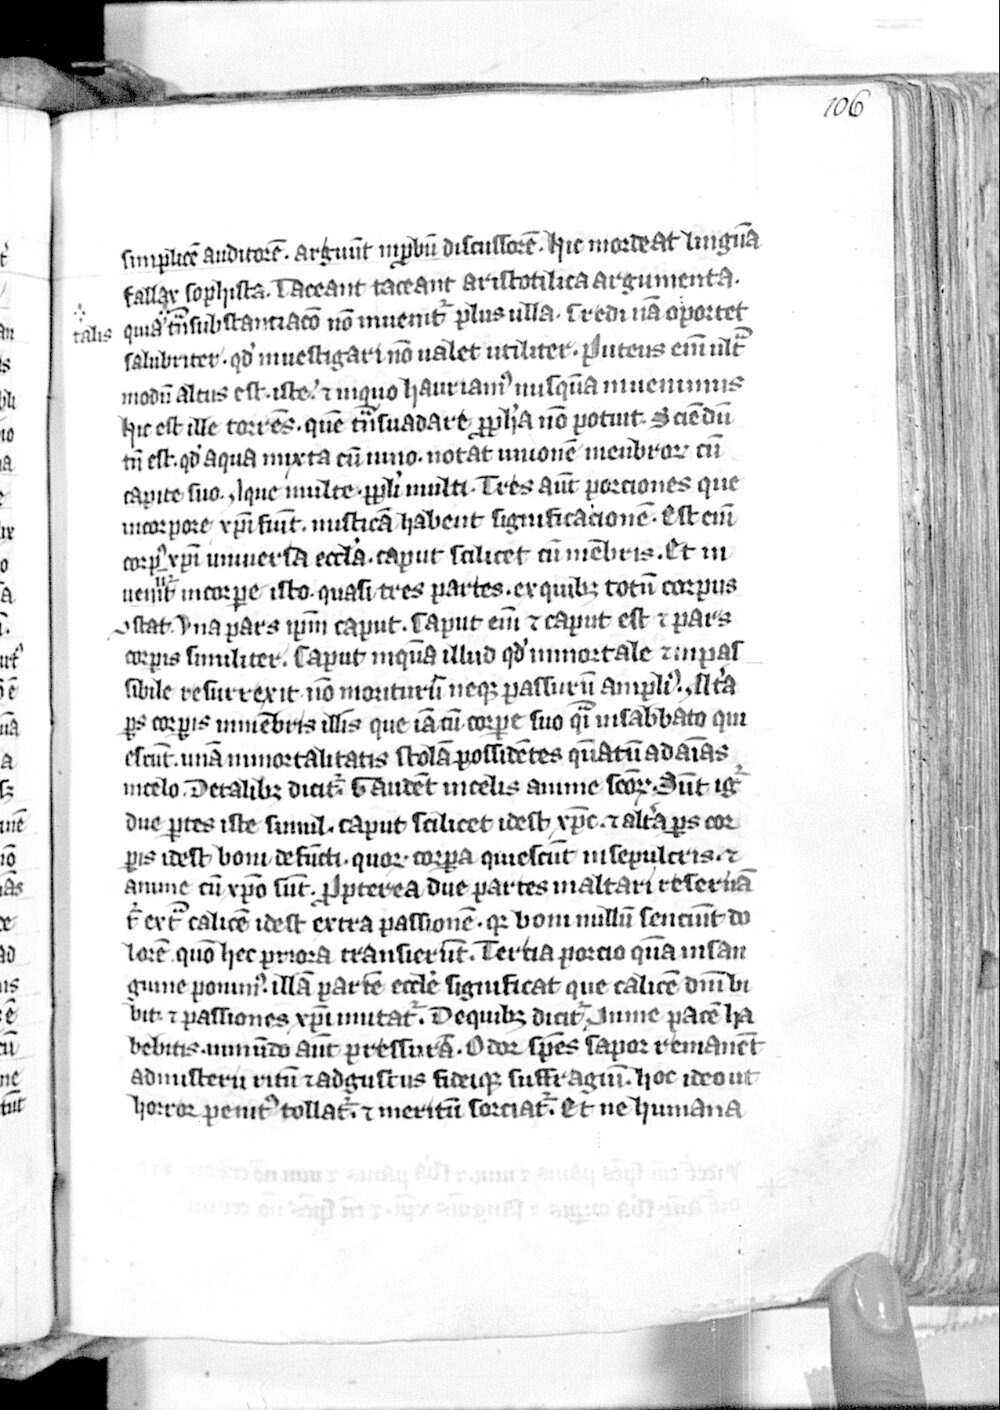 106
simplicē auditorē. arguūt īprobū discussorē. hic mordeat linguā
fallax sophista. Taceant taceant aristotilica argumenta.
talis quia trāsubstantiacō nō inuenit᷑ plus ulla. Credi nā oportet
salubriter. qd' inuestigari nō ualet utiliter. Puteus eīm ultͣ
modū altus est. iste. ⁊ inquo hauriam᷒ nusquā inuenimus
hic est ille torrēs. quē trāsuadare ꝓpħa nō potuit. Sciēdū
tn̄ est. qd' aqua mixta cū uino. notat unionē menbroꝝ cū
capite suo. Aque multe. ppl'i multi. Tres aūt porciones que
incorpore xpī fiūt. misticā habent significacionē. Est eīm
corp᷒ xpī uniuersa eccl'a. caput scilicet cū mēbris. Et in
ueniūt᷑ incorpe isto. quasi tres partes. ex quibꝫ totū corpus
ↄstat. Vna pars ip̄m caput. Caput eīm ⁊ caput est ⁊ pars
corp̲is similiter. Caput inquā illud qd' inmortale ⁊ inpas
sibile resurrexit nō moriturū neqꝫ passurū ampli᷒. Alt'a
ps corp̲is inmēbris illis que iā cū corpe suo qͣi insabbato qui
escūt. unā inmortalitatis stolā possidētes quātū ad aīas
incelo. De talibꝫ dicit᷑. Gaudēt incelis anime scōꝝ. Sūt ig᷑
due ꝑtes iste simul. caput scilicet idest xpc̄. ⁊ alt'a ps cor
ꝑis idest boni defūcti. quoꝝ corpa quiescūt insepulcris. ⁊
anime cū xpō sūt. Propterea due partes in altari reseruā
t᷑ extͣ calicē idest extra passionē. qꝛ boni nullū senciūt do
lorē quō hec priora transierūt. Tertia porcio quā insan
guine ponim᷒. illā partē eccl'e significat que calicē dnī bi
bit. ⁊ passiones xpī imitat᷑. De quibꝫ dicit᷑. In me pacē ha
bebitis. inmūdo aūt pressurā. Odor sp̄ēs sapor remanēt
admisterii ritū ⁊ adgustus fideiqꝫ suffragiū. hoc ideo ut
horror penit᷒ tollat᷑. ⁊ meritū sorciat᷑. Et ne humana